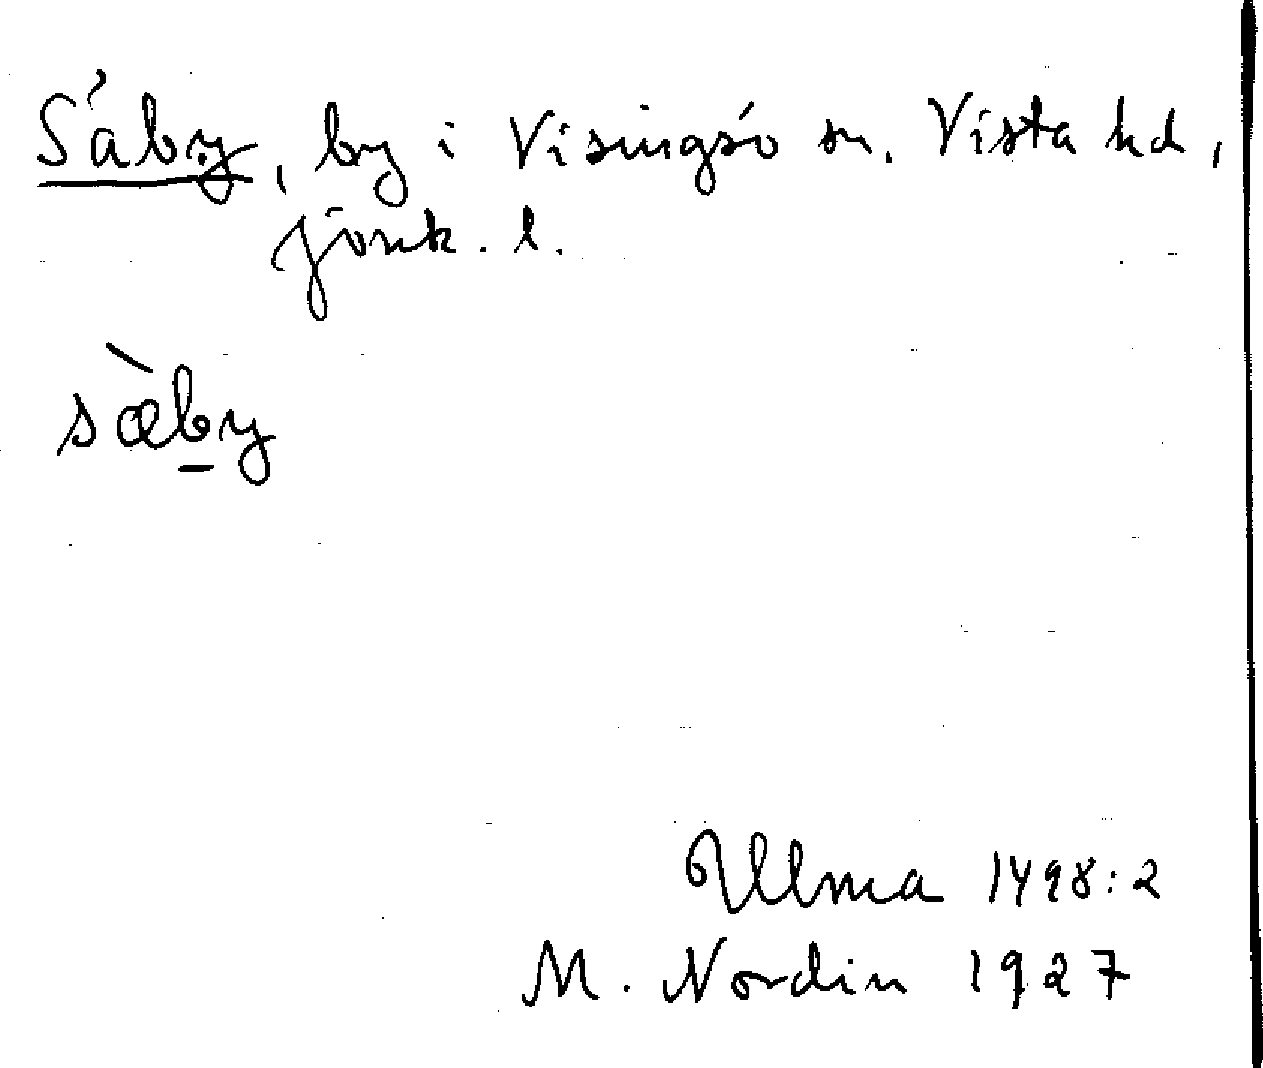 Säby, by i Visingsö sn. Vista hd,
Jönk. l.
sæ̀by
Ulma 1498:2
M. Nordin 1927